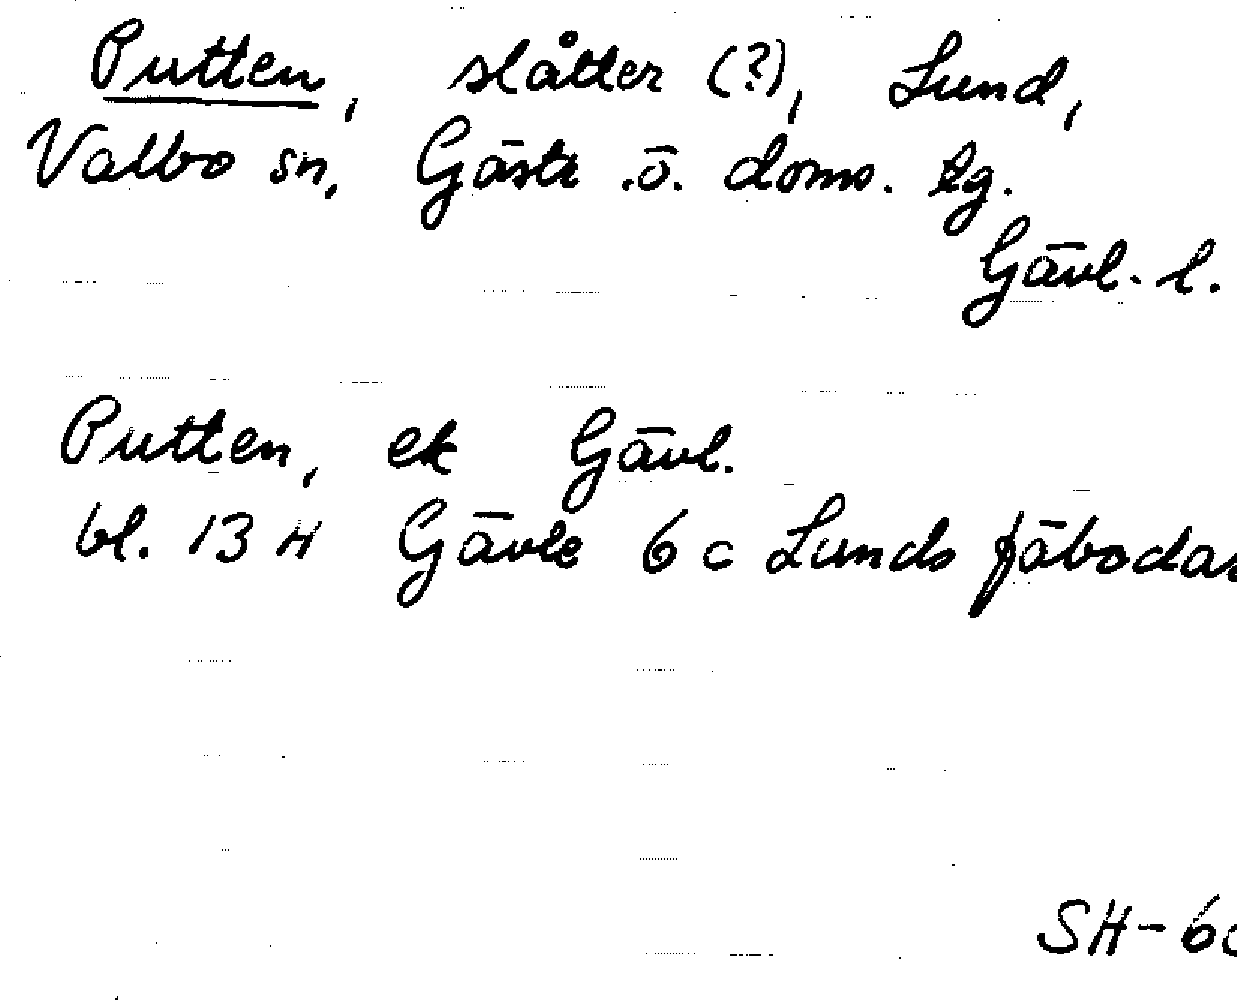 Putten, slåtter (?), Lund,
Valbo sn, Gästr .ö. doms. lg.
Gävl. l.
Putten, ek Gävl.
bl. 13 H Gävle 6 c Lunds fäbodar
SH-60